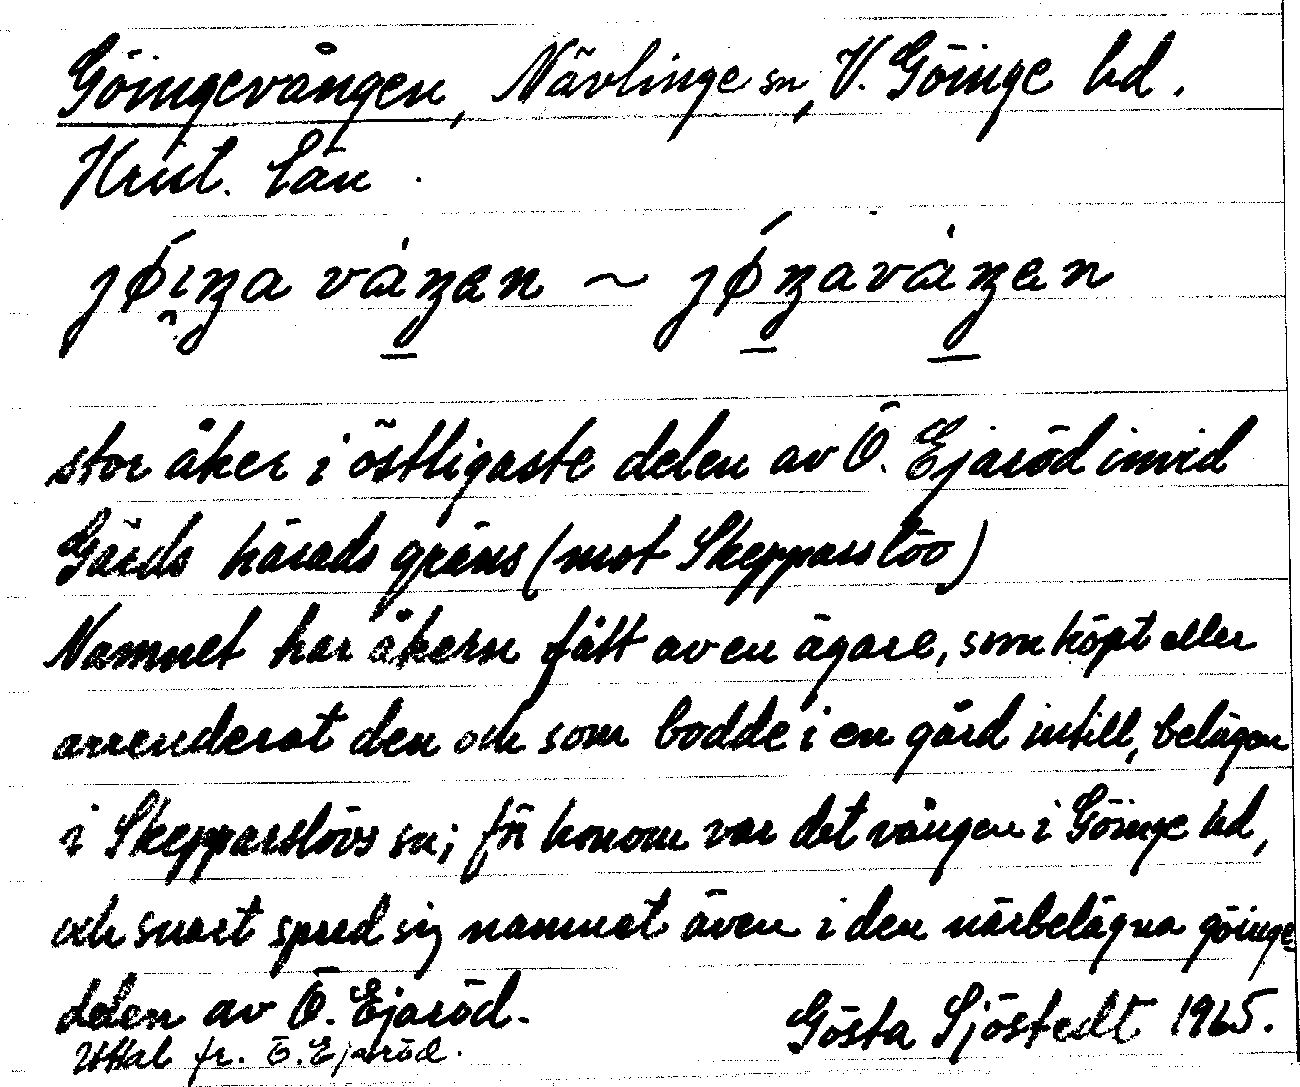 Göingevången, Nävlinge sn, V. Göinge hd.
Krist. län.
stor åker i östligaste delen av Ö. Ejaröd invid
Gärds härads gräns (mot Skepparslöv)
Namnet har åkern fått av en ägare, som köpt eller
arrenderat den och som bodde i en gård intill, belägen
i Skepparslövs sn; för honom var det vången i Göinge hd,
och snart spred sig namnet även i den närbelägna göinge-
delen av Ö. Ejaröd.
Gösta Sjöstedt 1965.
Uttal fr. Ö. Ejaröd.